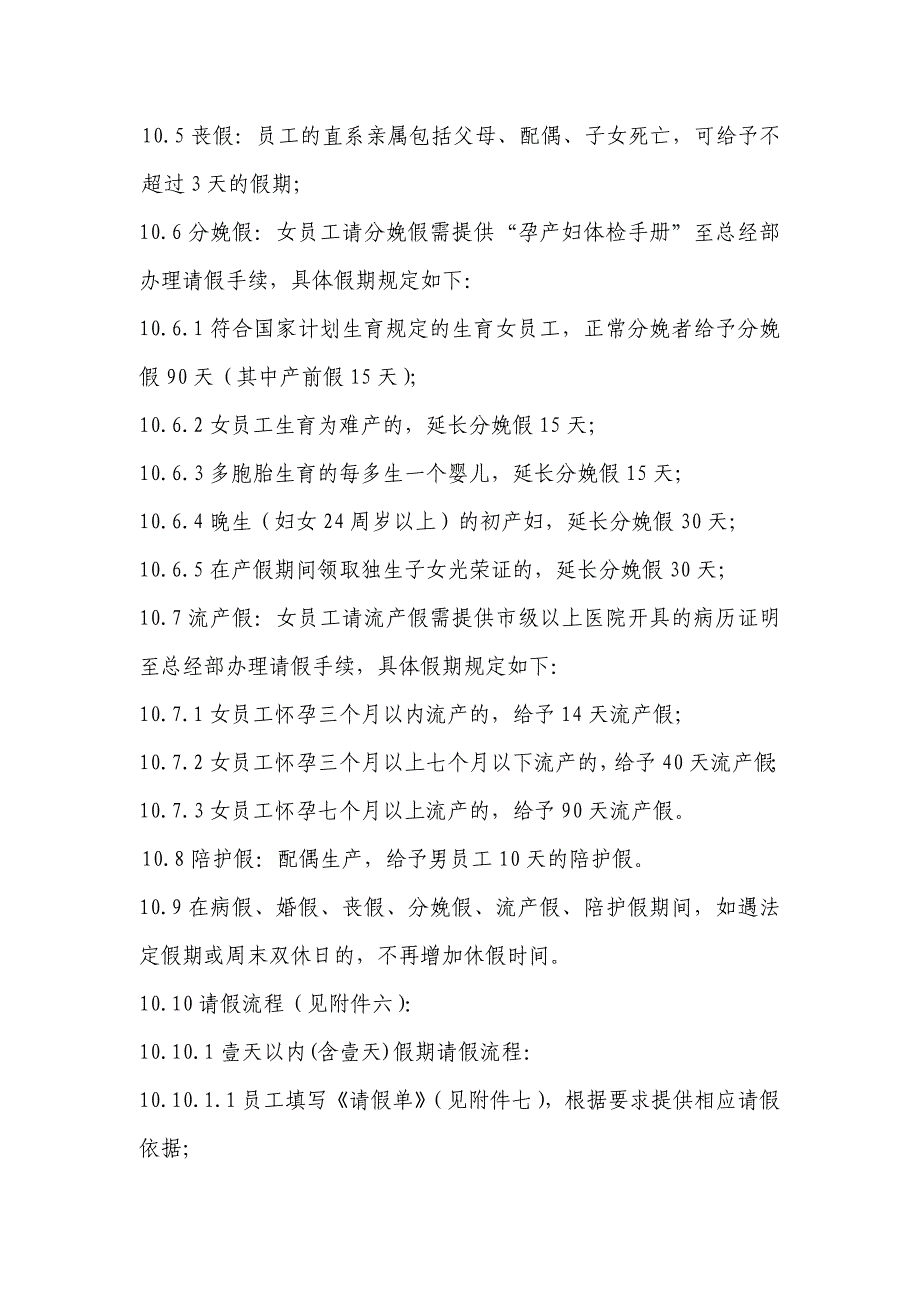 10.5 丧假：员工的直系亲属包括父母、配偶、子女死亡，可给予不
超过 3 天的假期；
10.6 分娩假：女员工请分娩假需提供“孕产妇体检手册”至总经部
办理请假手续，具体假期规定如下：
10.6.1 符合国家计划生育规定的生育女员工，正常分娩者给予分娩
假 90 天（其中产前假 15 天）；
10.6.2 女员工生育为难产的，延长分娩假 15 天；
10.6.3 多胞胎生育的每多生一个婴儿，延长分娩假 15 天；
10.6.4 晚生（妇女 24 周岁以上）的初产妇，延长分娩假 30 天；
10.6.5 在产假期间领取独生子女光荣证的，延长分娩假 30 天；
10.7 流产假：女员工请流产假需提供市级以上医院开具的病历证明
至总经部办理请假手续，具体假期规定如下：
10.7.1 女员工怀孕三个月以内流产的，给予 14 天流产假；
10.7.2 女员工怀孕三个月以上七个月以下流产的，给予 40 天流产假；
10.7.3 女员工怀孕七个月以上流产的，给予 90 天流产假。
10.8 陪护假：配偶生产，给予男员工 10 天的陪护假。
10.9 在病假、婚假、丧假、分娩假、流产假、陪护假期间，如遇法
定假期或周末双休日的，不再增加休假时间。
10.10 请假流程（见附件六）：
10.10.1 壹天以内(含壹天)假期请假流程：
10.10.1.1 员工填写《请假单》（见附件七），根据要求提供相应请假
依据；